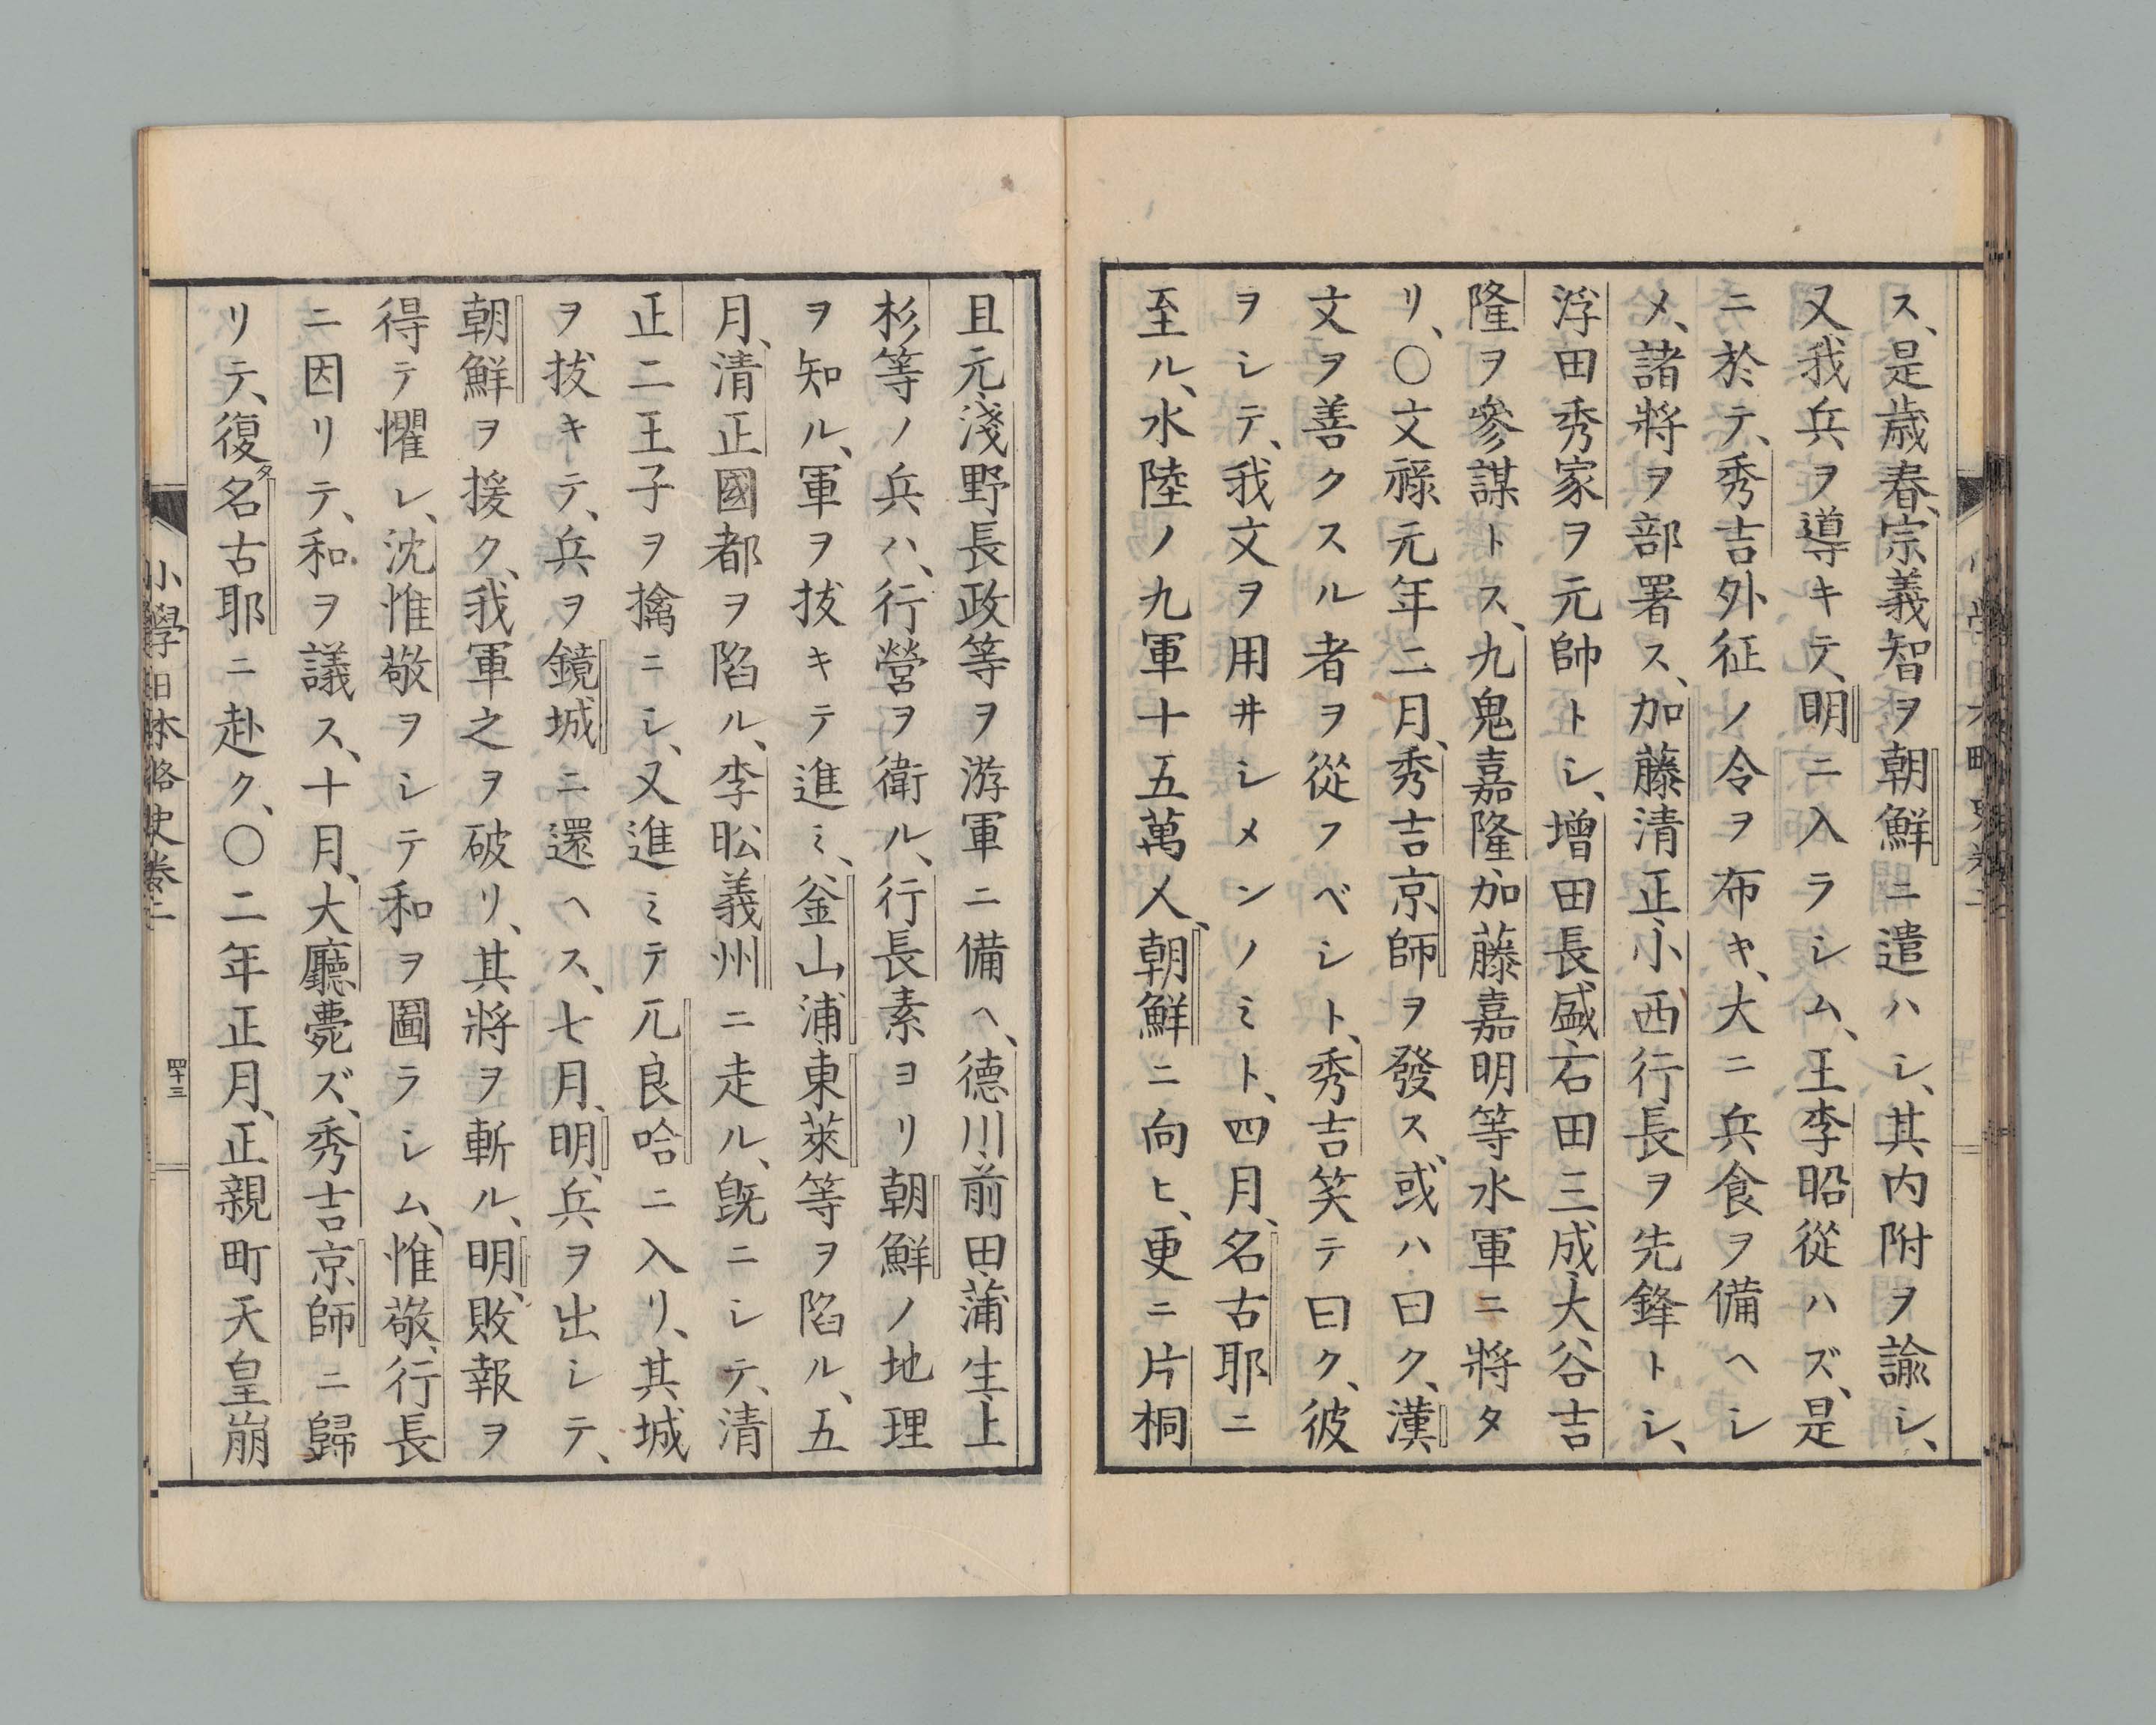 ス、是歳春、宗義智ヲ朝鮮ニ遣ハシ、其内附ヲ諭シ、
又我兵ヲ導キテ、明ニ入ラシム、王李昭從ハズ、是
ニ於テ、秀吉外征ノ令ヲ布キ、大ニ兵食ヲ備ヘシ
メ、諸將ヲ部署ス、加藤清正、小西行長ヲ先鋒トシ、
浮田秀家ヲ元帥トシ、増田長盛、石田三成、大谷吉
隆ヲ參謀トス、九鬼嘉隆、加藤嘉明等水軍ニ將タ
リ、〇文祿元年二月、秀吉京師ヲ發ス、或ハ曰ク、漢
文ヲ善クスル者ヲ從フベシト、秀吉笑テ曰ク、彼
ヲシテ、我文ヲ用井シメンノミト、四月、名古耶ニ
至ル、水陸ノ九軍十五萬人、朝鮮ニ向ヒ、更ニ片桐
且元、淺野長政等ヲ游軍ニ備ヘ、德川、前田、蒲生、上
杉等ノ兵ハ、行營ヲ衛ル、行長素ヨリ朝鮮ノ地理
ヲ知ル、軍ヲ抜キテ進ミ、釜山浦、東萊等ヲ陷ル、五
月、清正國都ヲ陷ル、李昖義州ニ走ル、既ニシテ、清
正二王子ヲ擒ニシ、又進ミテ兀良哈ニ入リ、其城
ヲ抜キテ、兵ヲ鏡城ニ還ヘス、七月、明、兵ヲ出シテ、
朝鮮ヲ援ク、我軍之ヲ破リ、其將ヲ斬ル、明、敗報ヲ
得テ懼レ、沈惟敬ヲシテ和ヲ圖ラシム、惟敬、行長
ニ因リテ、和ヲ議ス、十月、大廳薨ズ、秀吉京師ニ歸
リテ、復タ名古耶ニ赴ク、〇二年正月、正親町天皇崩
小學日本略史卷二
四十三